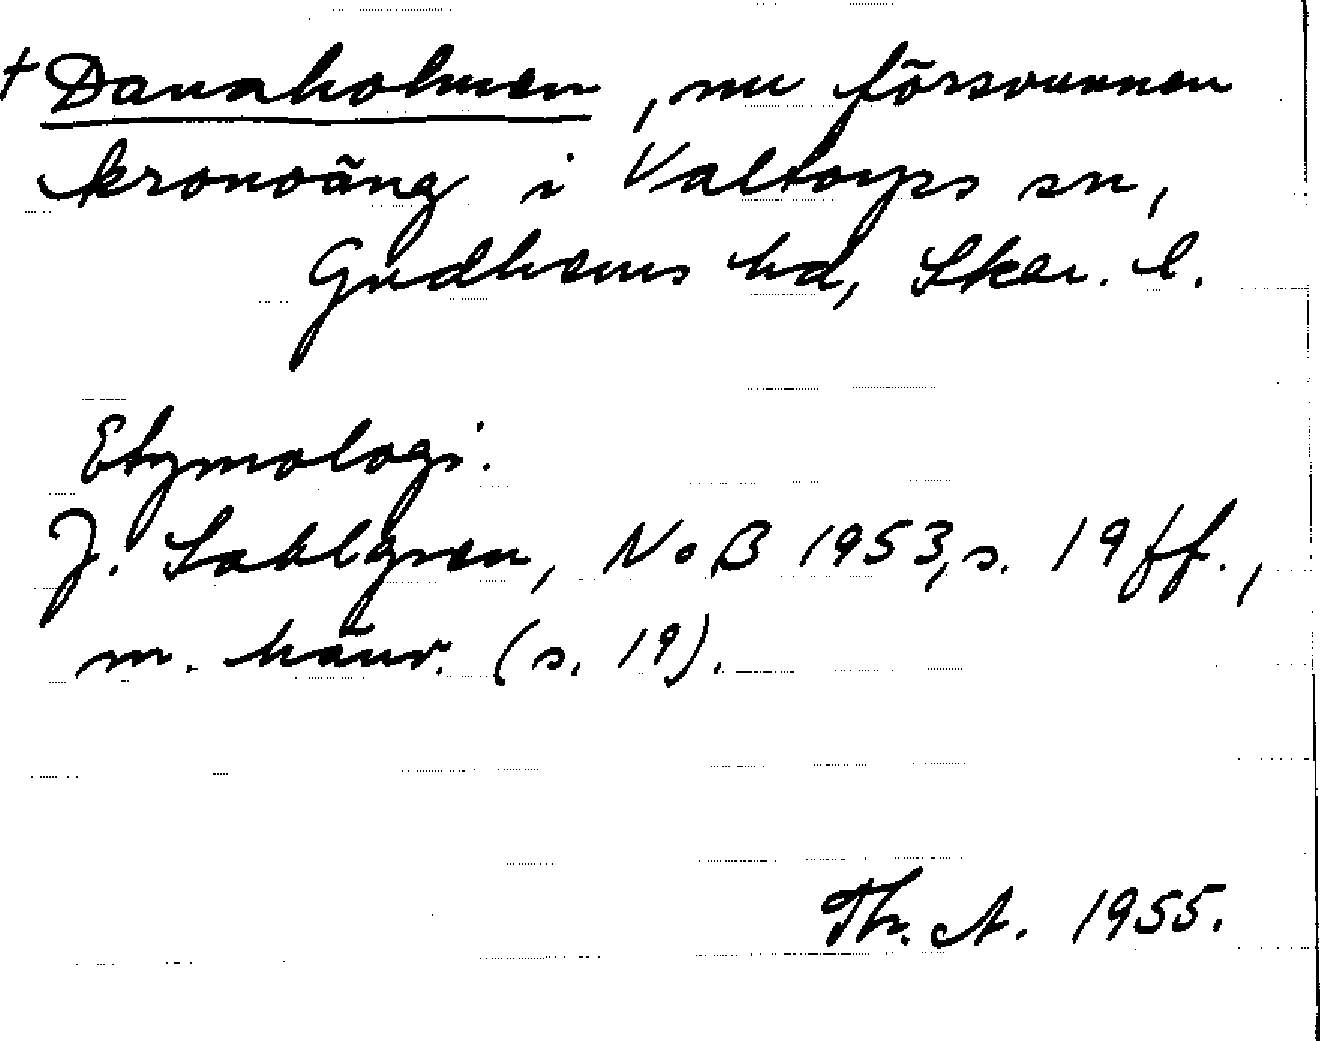 † Danaholmen, nu försvunnen
kronoäng i Valtorps sn,
Gudhems hd, Skar. l.
Etymologi.
J. Sahlgren, NoB 1953, s. 19 ff.,
m. hänv. (s. 19).
Th. A. 1955.